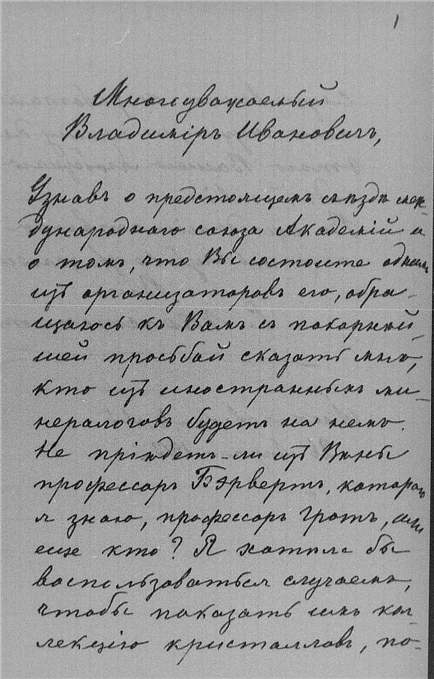 1
Многоуважаемый
Владиміръ Ивановичъ,
Узнавъ о предстоящемъ съѣздѣ меж-
дународнаго союза Академій и
о томъ, что Вы состоите однимъ
изъ организаторовъ его, обра-
щаюсь къ Вамъ съ покорнѣй-
шей просьбой сказать мнѣ,
кто изъ иностранныхъ ми-
нералоговъ будетъ на немъ.
Не пріѣдетъ-ли изъ Вѣны
профессоръ которого
я знаю, профессоръ Гротъ, или
еще кто? Я хотѣла бы
воспользоваться случаемъ,
чтобы показать имъ кол-
лекцію кристалловъ, по-